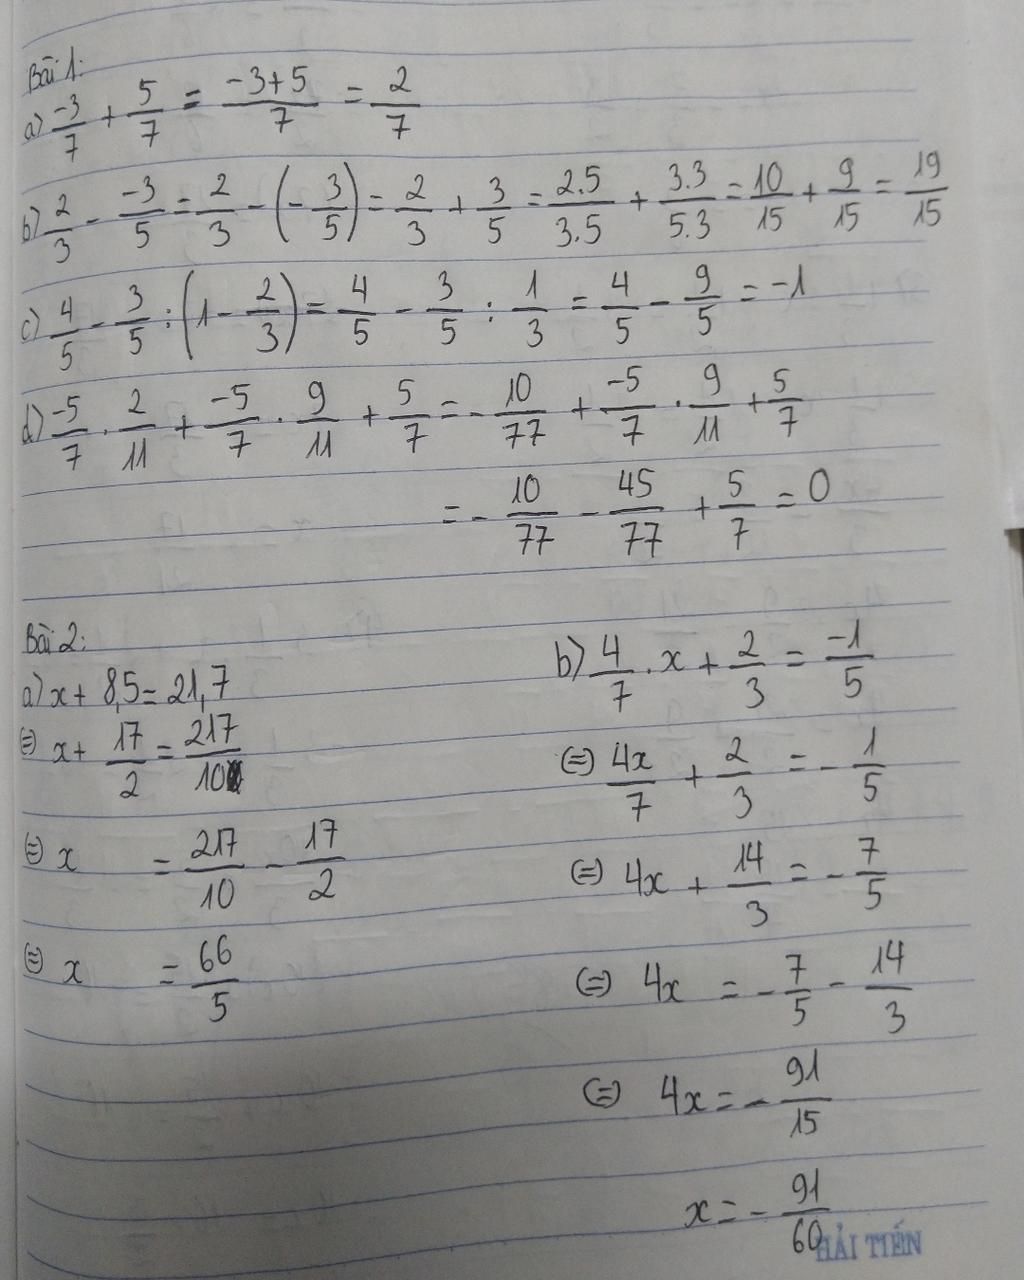 Bài 1:
a) -3/7 + 5/7 = (-3+5)/7 = 2/7
b) 2/3 - -3/5 = 2/3 - (- 3/5) = 2/3 + 3/5 = 2.5/3.5 + 3.3/5.3 = 10/15 + 9/15 = 19/15
c) 4/5 - 3/5 : (1 - 2/3) = 4/5 - 3/5 : 1/3 = 4/5 - 9/5 = -1
d) -5/7 . 2/11 + -5/7 . 9/11 + 5/7 = - 10/77 + -5/7 . 9/11 + 5/7
= - 10/77 - 45/77 + 5/7 = 0
Bài 2:
a) x + 8,5 = 21,7
(=) x + 17/2 = 217/10
(=) x = 217/10 - 17/2
(=) x = 66/5
b) 4/7 . x + 2/3 = -1/5
(=) 4x/7 + 2/3 = - 1/5
(=) 4x + 14/3 = - 7/5
(=) 4x = - 7/5 - 14/3
(=) 4x = - 91/15
x = - 91/60
HẢI TIẾN